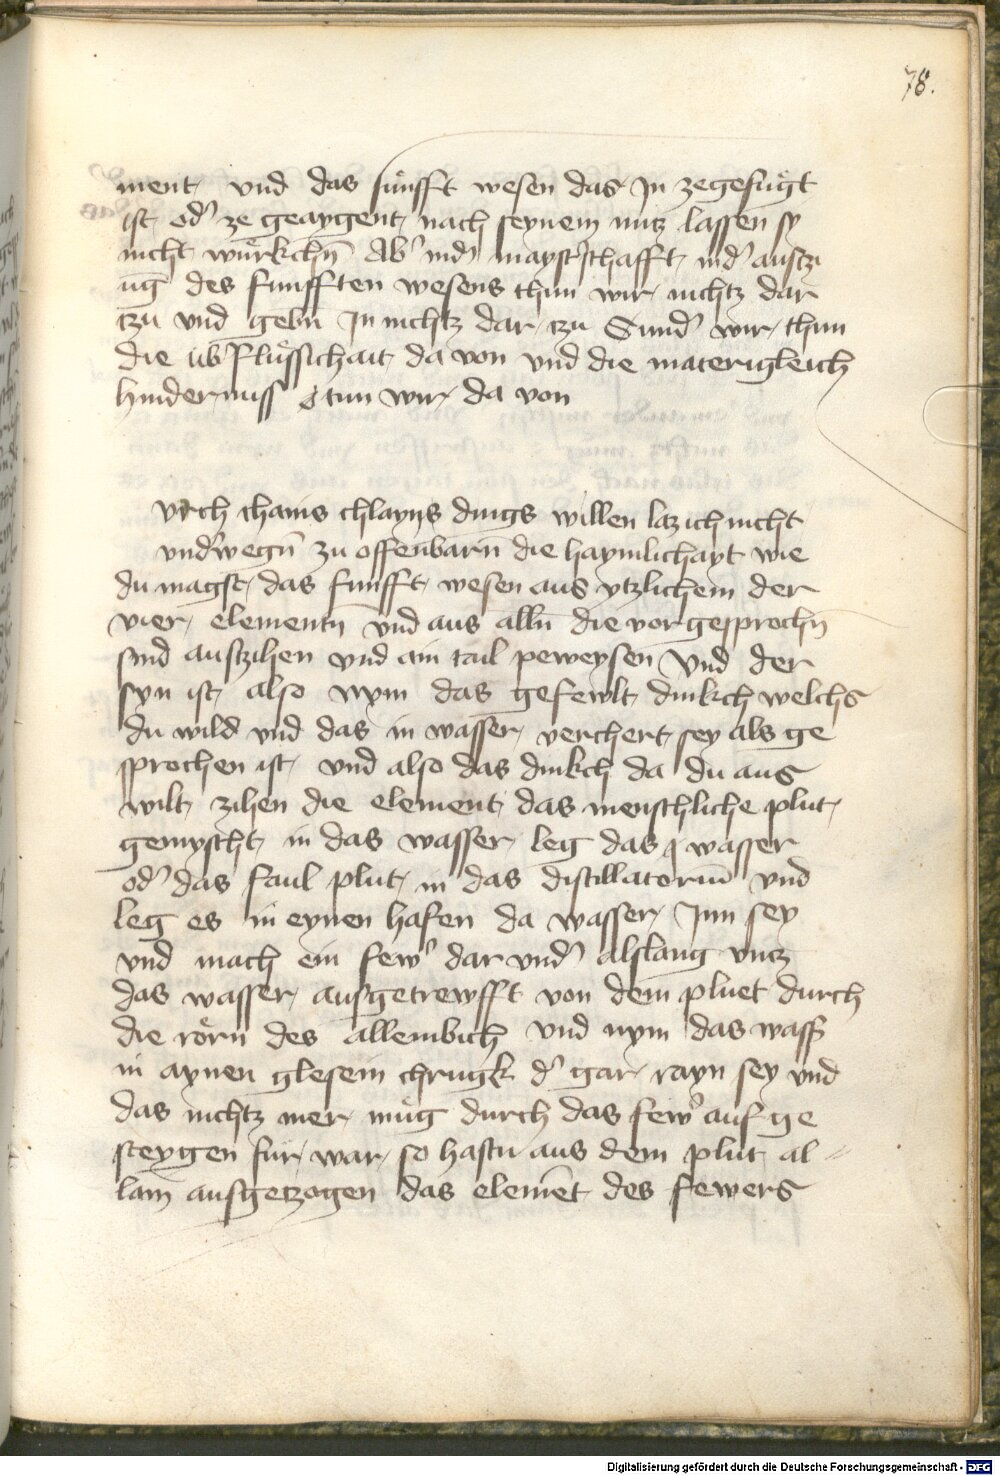 78.
ment und das fünfft wesen das In zegefügt
ist od' ze geaygent nach seynem nutz lassen sy
nicht würkchn̄ Ab' ind' mayst'schafft ind' auszi
ūg des funfften wesens thun wir nichtz dar
tzu vnd gebn̄ In nichtz dar tzu Sund' wir thun
die üb'flüssichait da von vnd die materigleich
hindernuss tun wir da von
vrch chains chlayns dings willen laz ich nicht
vnd'wegn̄ zu offenbarn̄ die haymlichayt wie
du magst das funfft wesen aus ytzlichem der
vier elementn̄ vnd aus alln̄ die vorgesprochn̄
sind auszihen vnd ain tail peweysen Vnd der
syn ist also nym das gefewlt dinkch welchs
du wild vnd das in wasser verchert sey als ge
sprochen ist vnd also das dinkch da du aus
wilt zihen die element das menschliche plut
gemyscht in das wasser leg das wasser
od' das faul plut in das distillatoriū vnd
leg es in eynen hafen da wasser Inn sey
vnd mach ein few' dar vnd' alslang vntz
das wasser ausgetrewfft von dem pluet durch
die rörn des allembich vnd nym das wass'
in aynen glesein chrugk d' gar rayn sey vnd
das nichtz mer müg durch das few' auf ge
steygen für war so hastu aus dem plut al
lain ausgetzogen das elemēt des fewers
Digitalisierung gefördert durch die Deutsche Forschungsgemeinschaft - DFG